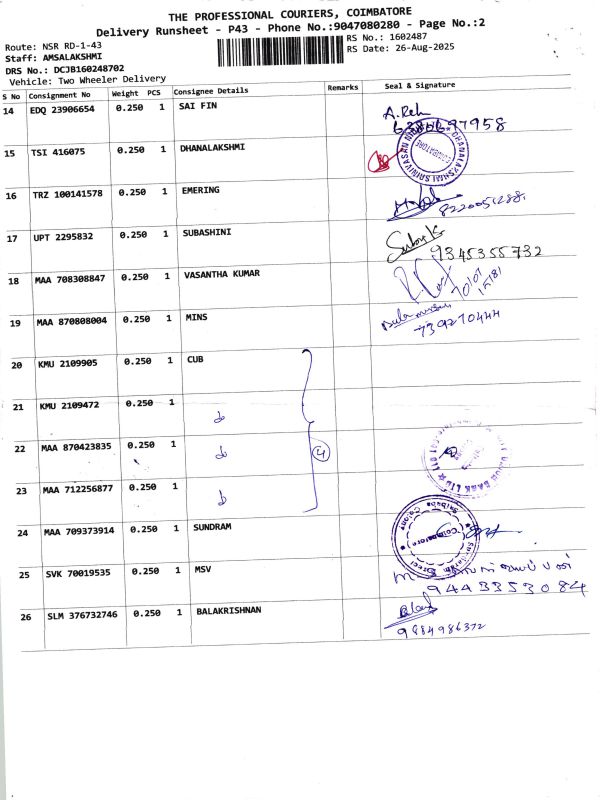 THE PROFESSIONAL COURIERS, COIMBATORE
Delivery Runsheet - P43 - Phone No.:9047080280 - Page No.:2
Route: NSR RD-1-43
RS No.: 1602487
Staff: AMSALAKSHMI
RS Date: 26-Aug-2025
DRS No.: DCJB160248702
Vehicle: Two Wheeler Delivery
S No Consignment No Weight PCS Consignee Details Remarks Seal & Signature
14 EDQ 23906654 0.250 1 SAI FIN
15 TSI 416075 0.250 1 DHANALAKSHMI
16 TRZ 100141578 0.250 1 EMERING
8220051288
17 UPT 2295832 0.250 1 SUBASHINI
9345355732
18 MAA 708308847 0.250 1 VASANTHA KUMAR
19 MAA 870808004 0.250 1 MINS
739270444
20 KMU 2109905 0.250 1 CUB
21 KMU 2109472 0.250 1
22 MAA 870423835 0.250 1
4
23 MAA 712256877 0.250 1
24 MAA 709373914 0.250 1 SUNDRAM
Coimbatore
25 SVK 70019535 0.250 1 MSV
9443353084
26 SLM 376732746 0.250 1 BALAKRISHNAN
9884986372